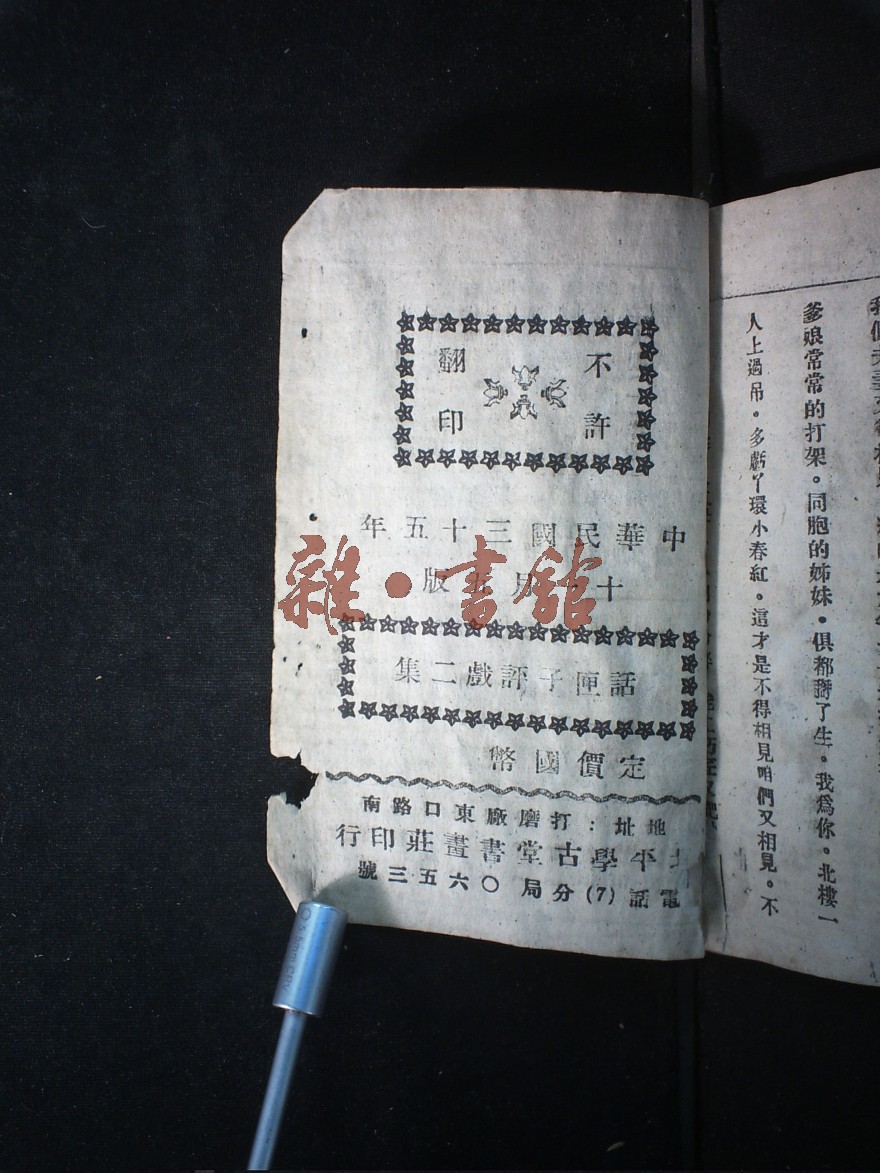 不許
翻印
中華民國三十五年
十一月五版
話匣子評戲二集
定價國幣
地址：打磨廠東口路南
北平學古堂書畫莊印行
電話(7)分局〇六五三號
雜·書館
爹娘常常的打架。同胞的姊妹。俱都孵了生。我爲你。北樓一
人上過吊。多虧丫環小春紅。這才是不得相見咱們又相見。不